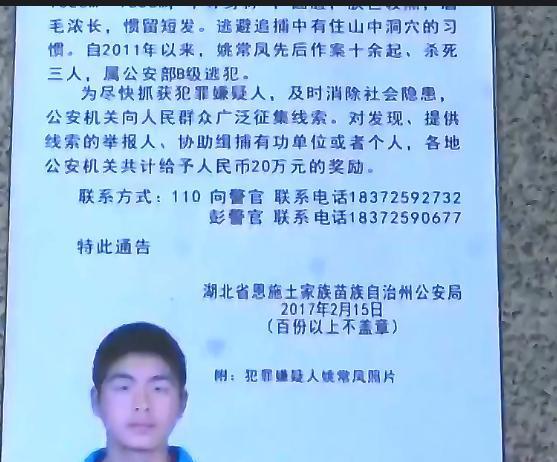 毛浓长，惯留短发。逃避追捕中有住山中洞穴的习
惯。自2011年以来，姚常凤先后作案十余起、杀死
三人，属公安部B级逃犯。
为尽快抓获犯罪嫌疑人，及时消除社会隐患，
公安机关向人民群众广泛征集线索。对发现、提供
线索的举报人、协助缉捕有功单位或者个人，各地
公安机关共计给予人民币20万元的奖励。
联系方式：110 向警官 联系电话18372592732
彭警官 联系电话18372590677
特此通告
湖北省恩施土家族苗族自治州公安局
2017年2月15日
（百份以上不盖章）
附：犯罪嫌疑人姚常凤照片